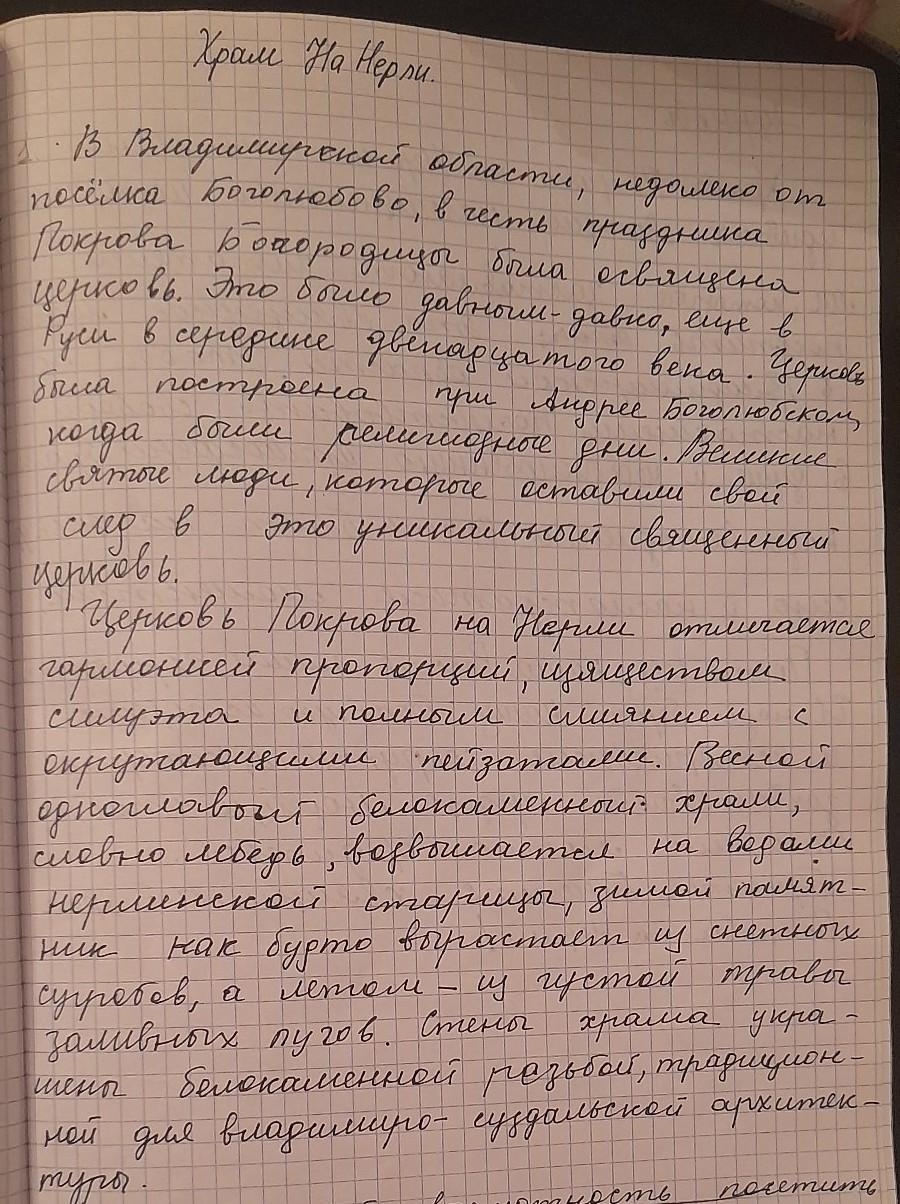 Храм На Нерли.
В Владимирской области, недалеко от
посёлка Боголюбово, в честь праздника
Покрова Богородицы была освящена
церковь. Это было давным-давно, еще в
Руси в середине двенадцатого века. Церковь
была построена при Андрее Боголюбском,
когда были религиозные дни. Великие
святые люди, которые оставили свой
след в это уникальный священный
церковь.
Церковь Покрова на Нерли отличается
гармонией пропорций, изяществом
силуэта и полным слиянием с
окружающими пейзажами. Весной
одноглавый белокаменный храм,
словно лебедь, возвышается на водами
нерлинской старицы, зимой памят-
ник как будто вырастает из снежных
сугробов, а летом – из густой травы
заливных лугов. Стены храма укра-
шены белокаменной резьбой, традицион-
ной для владимиро-суздальской архитек-
туры.
посетить